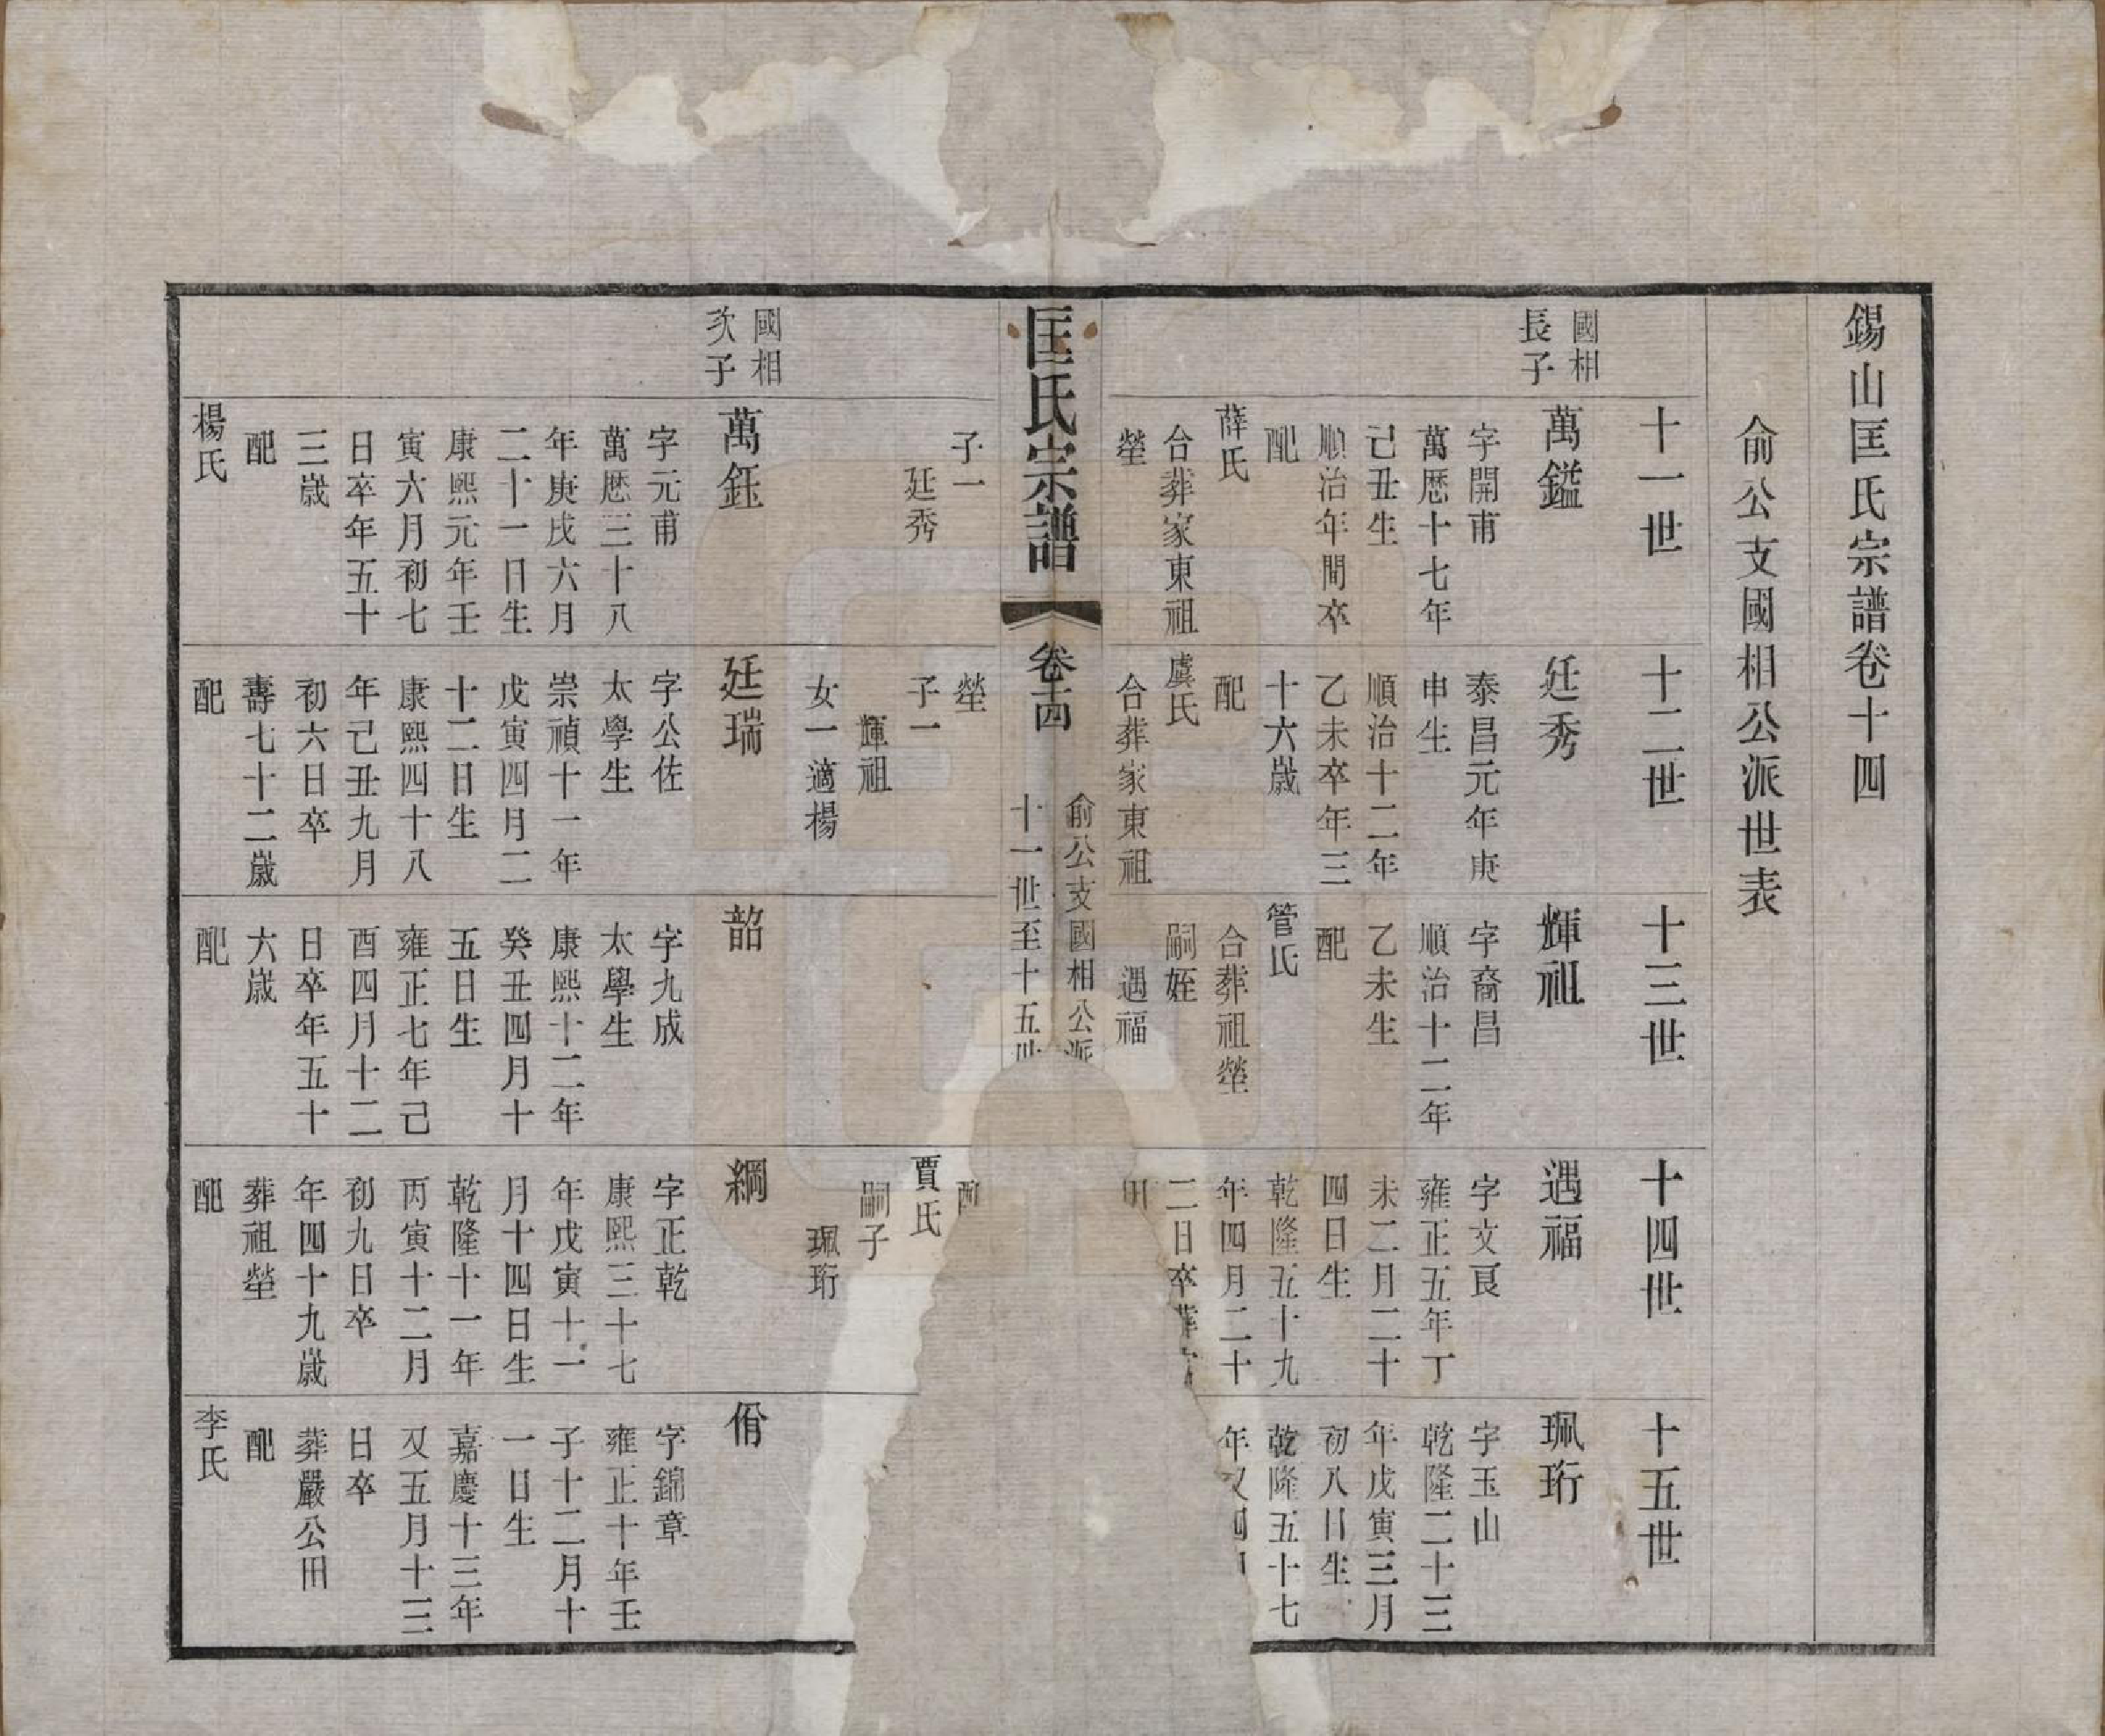 錫山匡氏宗譜卷十四
俞公支國相公派世表
十一世
十二世
十三世
十四世
十五世
國相
長子
萬鎰
字開甫
萬厯十七年
己丑生
順治年間卒
配
薛氏
合葬家東祖
塋
子一
廷秀
廷秀
泰昌元年庚
申生
順治十二年
乙未卒年三
十六歲
配
虞氏
合葬家東祖
塋
子一
輝祖
女一適楊
輝祖
字裔昌
順治十二年
乙未生
配
管氏
合葬祖塋
嗣姪
遇福
遇福
字文艮
雍正五年丁
未二月二十
四日生
乾隆五十九
年四月二十
二日卒葬
配
賈氏
嗣子
珮珩
珮珩
字玉山
乾隆二十三
年戊寅三月
初八日生
乾隆五十七
年又四
匡氏宗譜
卷十四
俞公支國相公派
十一世至十五世
國相
次子
萬鈺
字元甫
萬厯三十八
年庚戌六月
二十一日生
康熙元年壬
寅六月初七
日卒年五十
三歲
配
楊氏
廷瑞
字公佐
太學生
崇禎十一年
戊寅四月二
十二日生
康熙四十八
年己丑九月
初六日卒
壽七十二歲
配
韶
字九成
太學生
康熙十二年
癸丑四月十
五日生
雍正七年己
酉四月十二
日卒年五十
六歲
配
綱
字正乾
康熙三十七
年戊寅十一
月十四日生
乾隆十一年
丙寅十二月
初九日卒
年四十九歲
葬祖塋
配
佾
字錦章
雍正十年壬
子十二月十
一日生
嘉慶十三年
又五月十三
日卒
葬嚴公田
配
李氏